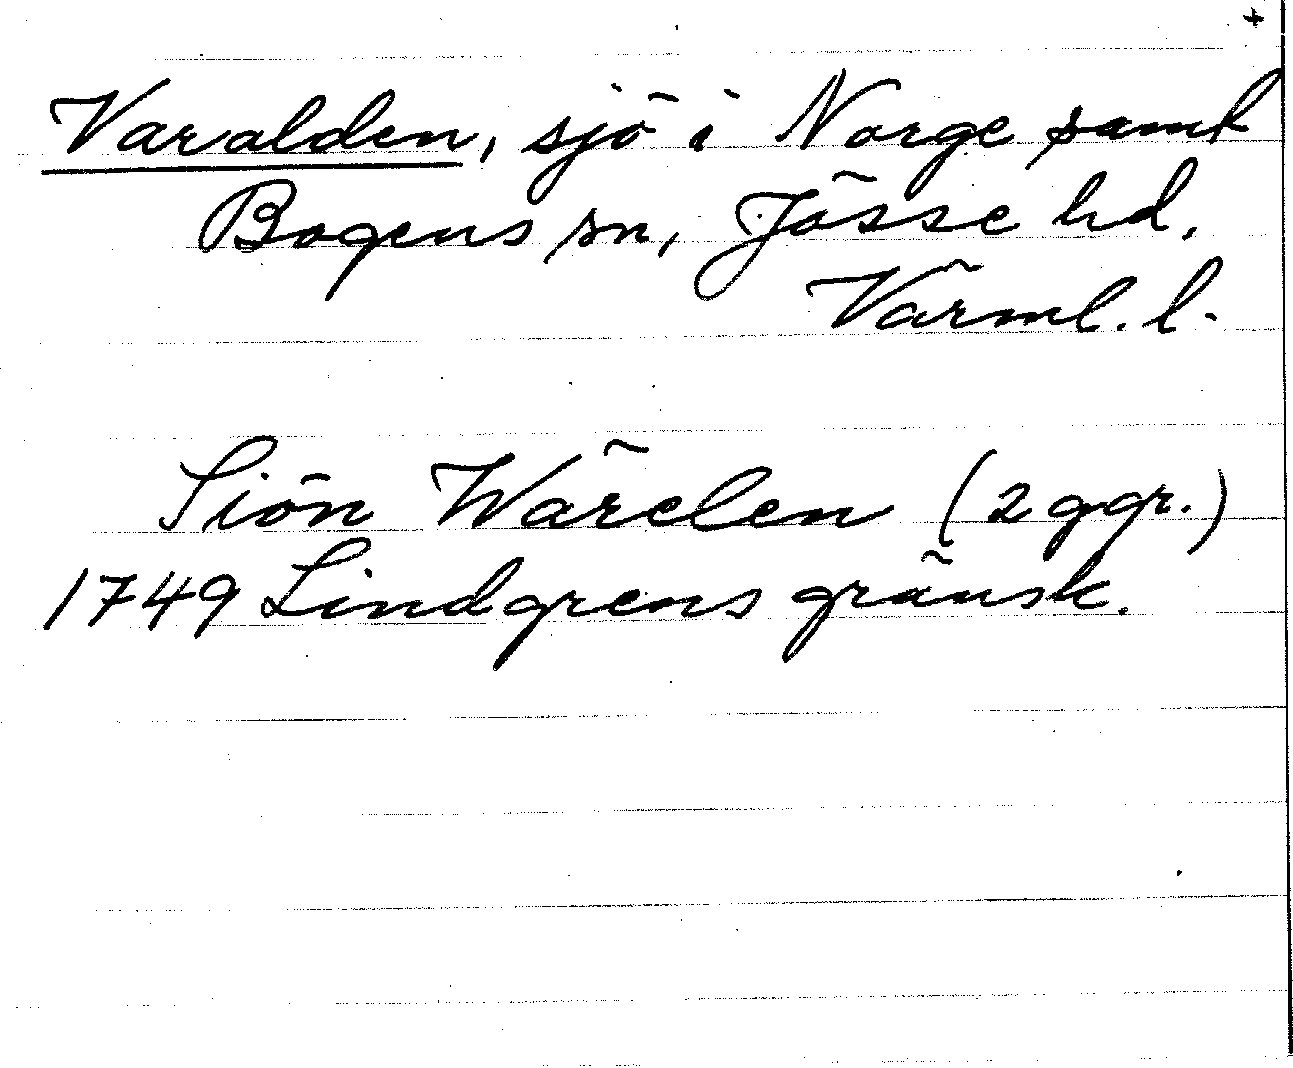 +
Varalden, sjö i Norge samt
Bogens sn, Jösse hd,
Värml. l.
Siön Wärelen (2 ggr.)
1749 Lindgrens gränsk.